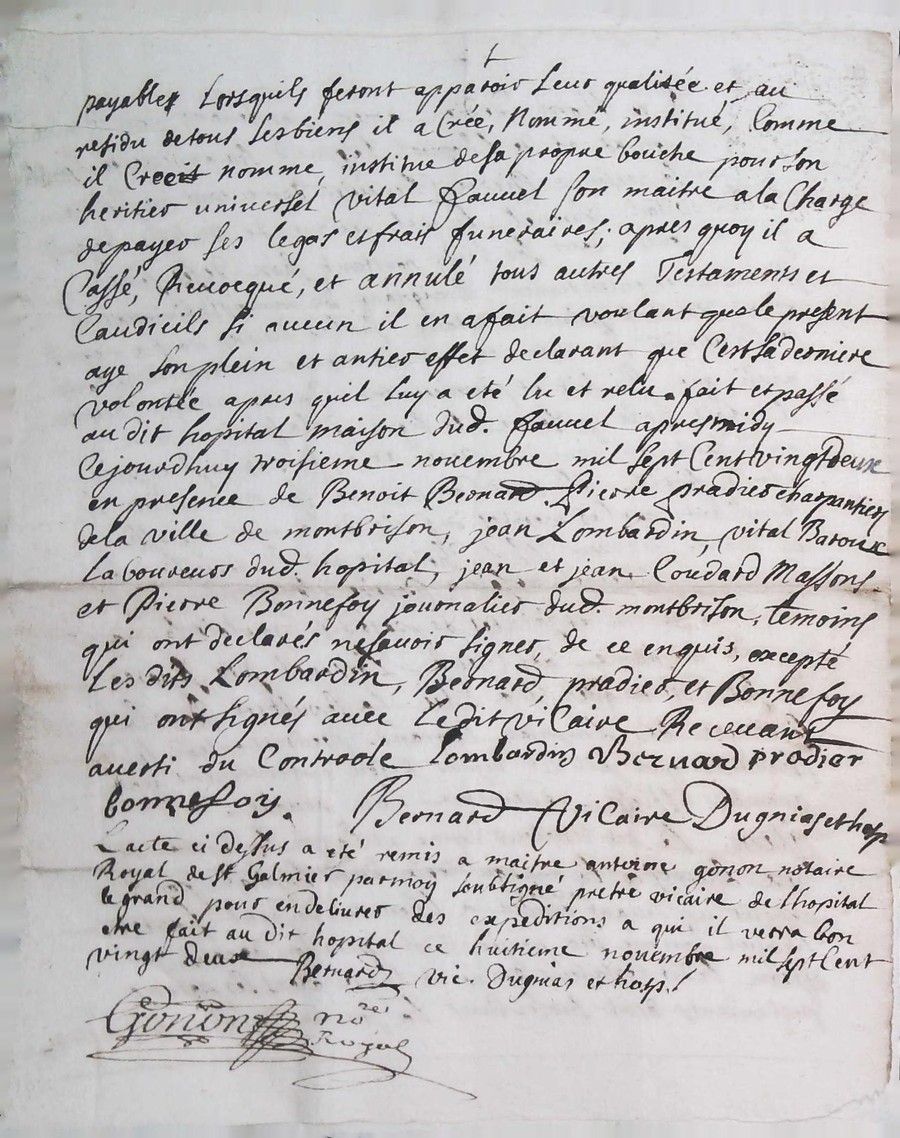 payable lorsquils feront apparoir leur qualitée et au
residu detous ses biens il a crée, nommé, institué, comme
il Creeit nomme, institue desa propre bouche pour son
heritier universel vital fauuel son maitre ala Charge
depayer ses legas et frais funeraires; apres quoy il a
Cassé, Reuocqué, et annulé tous autres Testaments et
Caudicils si aucun il en a fait voulant quele present
aye son plein et antier effet declarant que C'est sa derniere
volontée apres quil luy a eté lu et relu. fait et passé
au dit hopital maison dud. fauuel apresmidy
Cejourdhuy troisieme novembre mil sept Cent vingt deux
en presence de Benoit Bernard Pierre pradier charpantiers
dela ville de montbrison, jean Lombardin, vital Baroux
laboureurs dud. hopital, jean et jean Coudard Massons
et Pierre Bonnefoy jouonalier dud. montbrison, temoins
qui ont declarés nesavoir signer, de ce enquis, excepté
les dits Lombardin, Bernard, pradier, et Bonnefoy
qui ont signés avec ledit viCaire Recevant
auerti du Controole lombardin Bernard prodier
bonnefoiy. Bernard Vicaire Dugnias et hosp
L'acte ci dessus a eté remis a maitre antoine gonon notaire
Royal de St Galmier parmoy soubsigné prétre vicaire de l'hopital
le grand pour endelivrer des expeditions a qui il verra bon
etre fait au dit hopital ce huitieme novembre mil sept Cent
vingt deux Bernard vic. Dugnias et hosp.
Gonon no.re
Royal